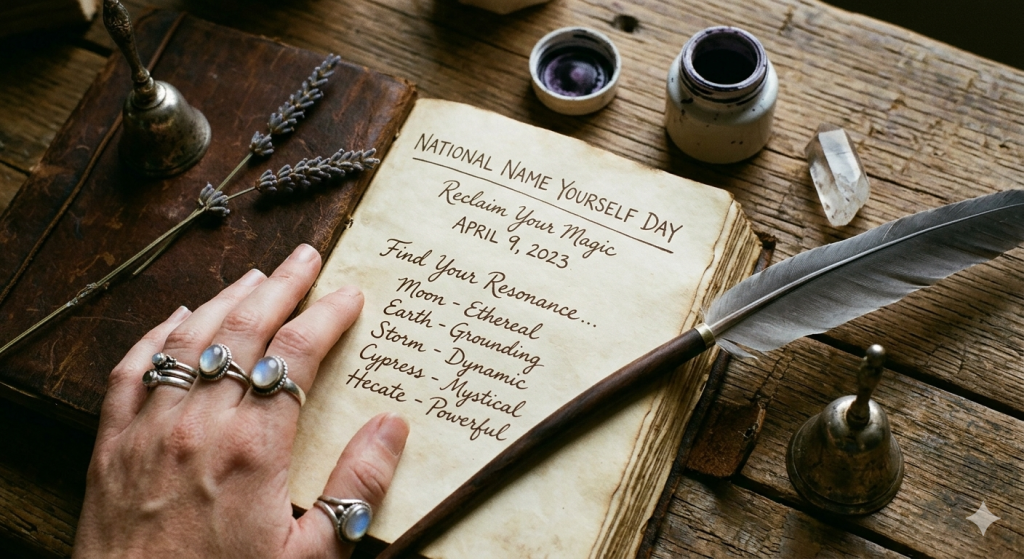 NATIONAL NAME YOURSELF DAY
Reclaim Your Magic
APRIL 9, 2023
Find Your Resonance...
Moon - Ethereal
Earth - Grounding
Storm - Dynamic
Cypress - Mystical
Hecate - Powerful